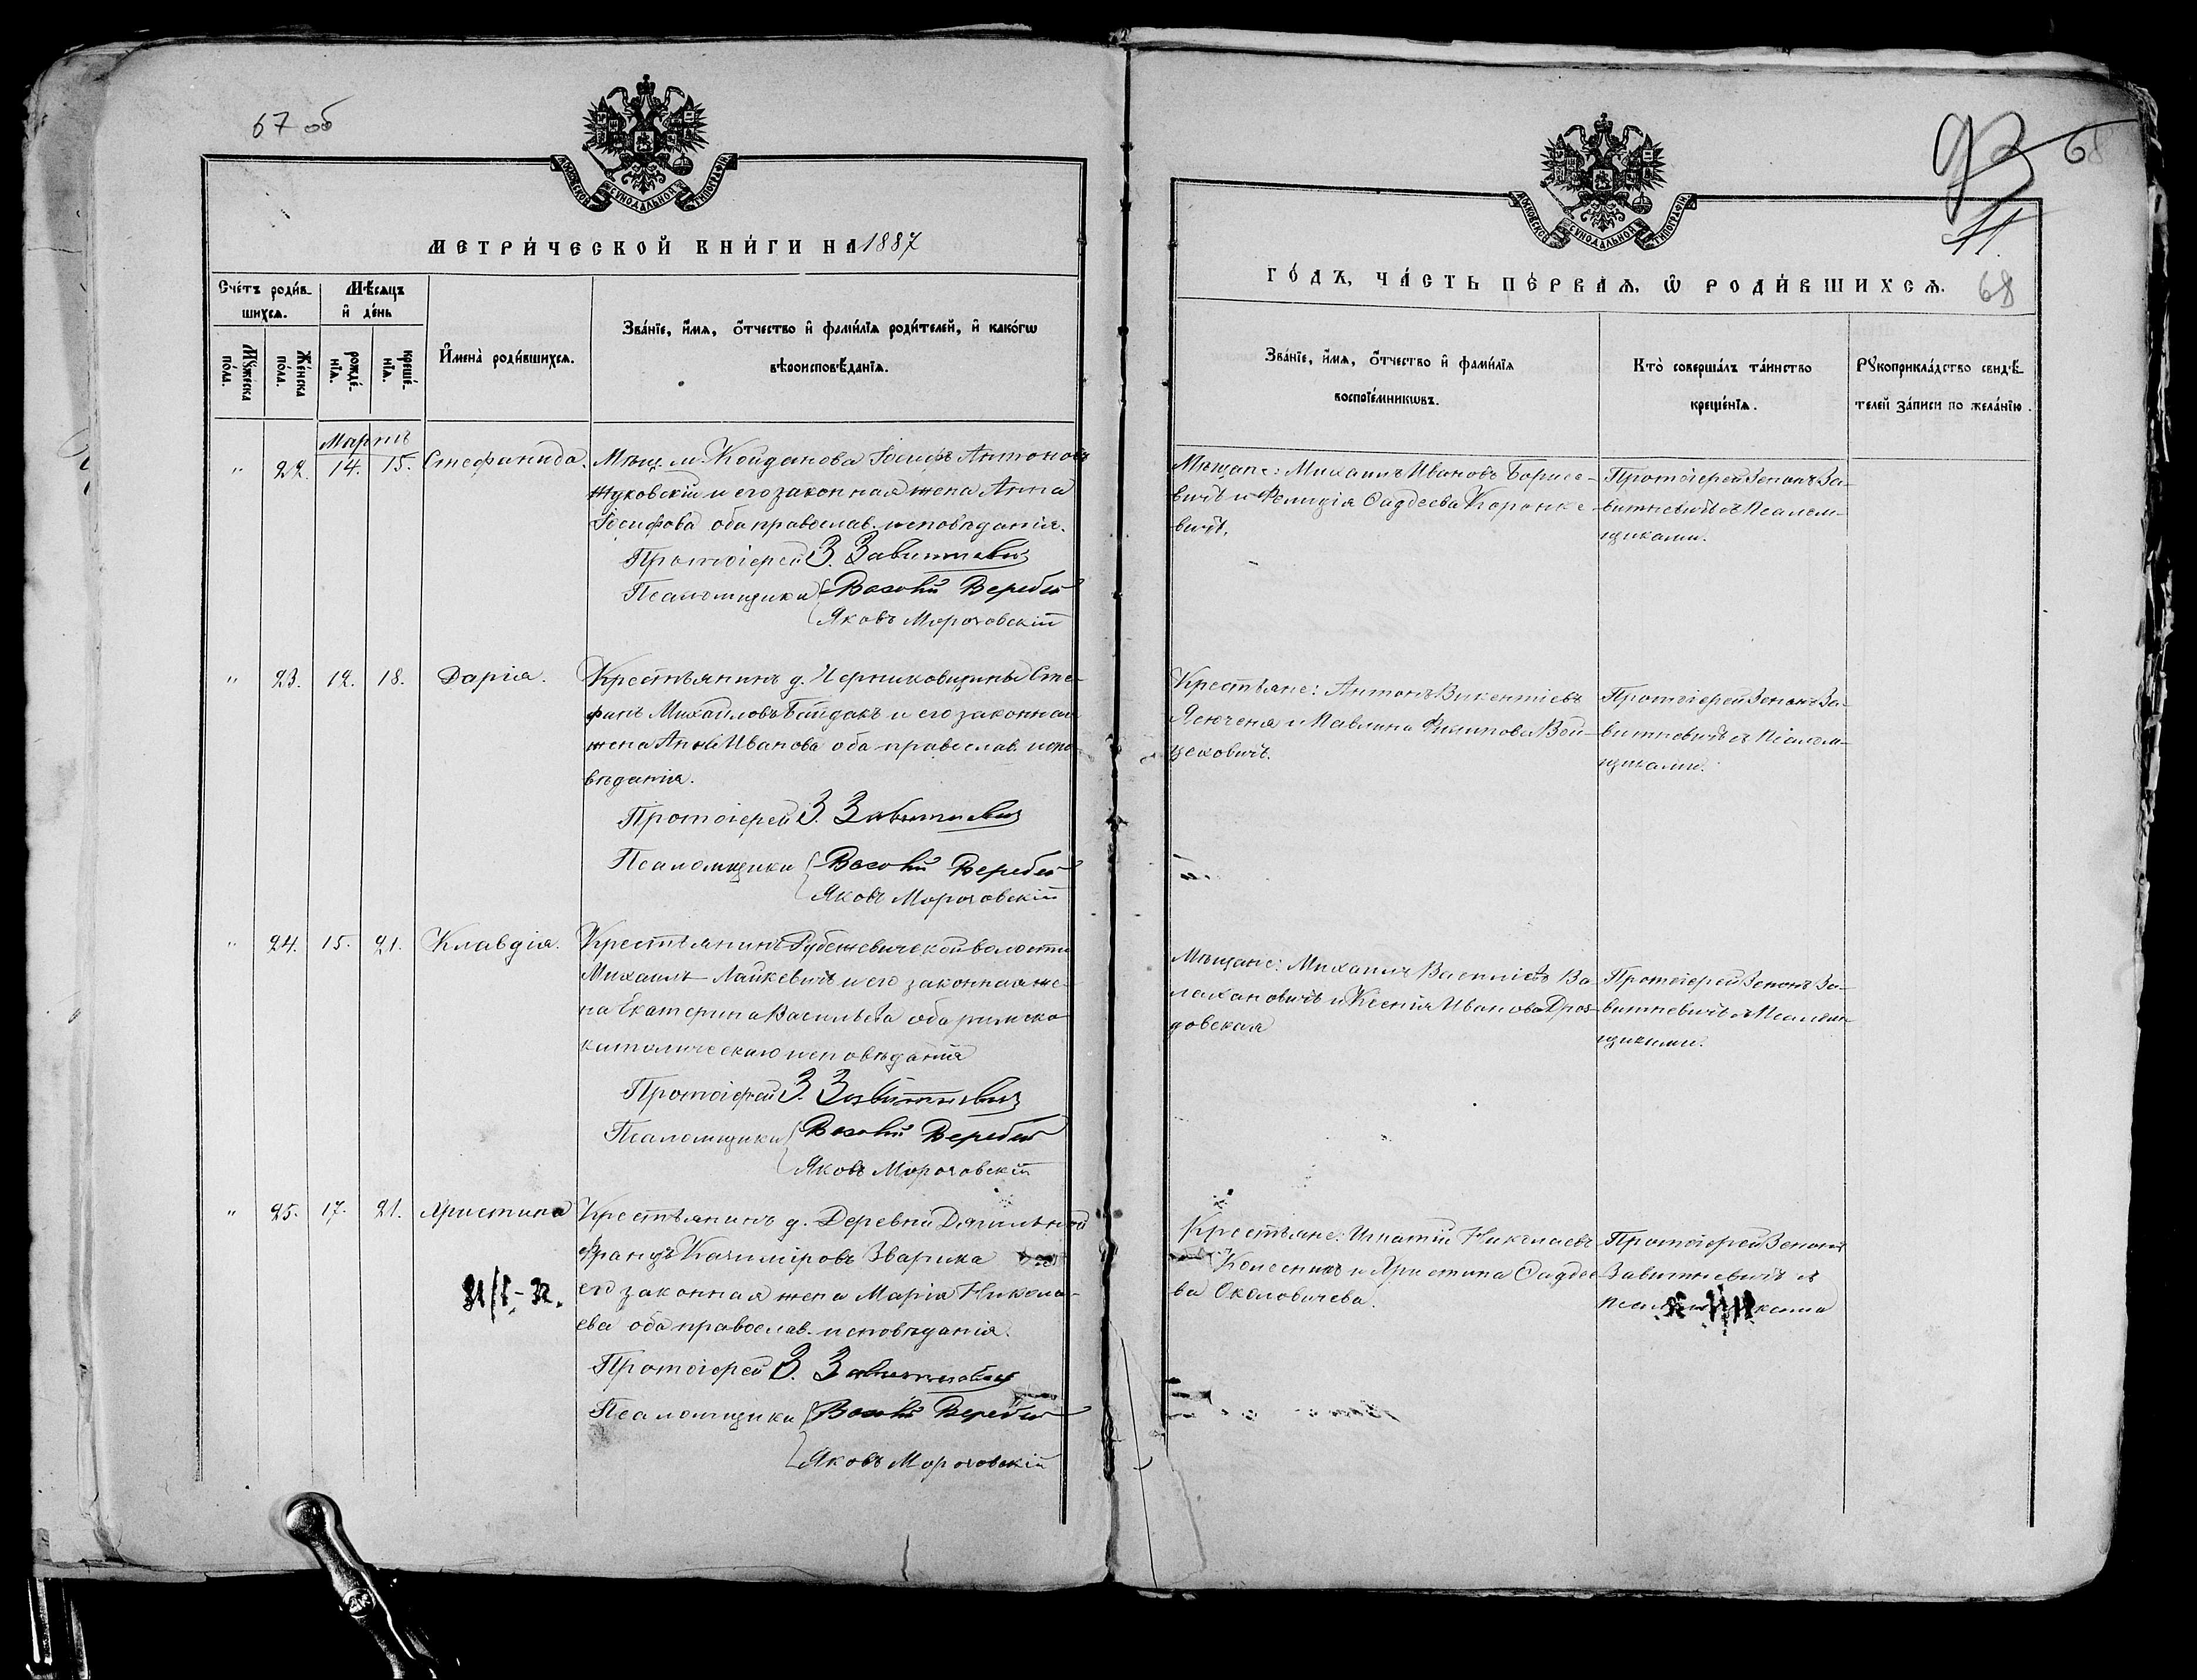 67 об
МОСКОВСКОЙ СѴНОДАЛЬНОЙ ТИПОГРАФІИ
МЕТРИ́ЧЕСКОЙ КНИ́ГИ НА 1887
Сче́тъ роди́в-
шихсѧ.
Мѣ́сѧцъ
и҆ де́нь
Мꙋ́жеска
по́ла.
Же́нска
по́ла.
рожде́-
нїѧ.
креще́-
нїѧ.
И҆мена̀ роди́вшихсѧ.
Зва́нїе, и҆́мѧ, ѻ҆́тчество и҆ фамѝлїѧ роди́телей, и҆ како́гѡ
вѣроисповѣ́данїѧ.
Мартъ
" 22. 14. 15. Стефанида.
Мѣщ. м. Койданова Іосифъ Антоновъ
Жуковскій и его законная жена Анна
Іосифова оба православ. исповѣданія.
Протоіерей З. Завитневич
Псаломщики
Яковъ Морочовскій
" 23. 12. 18. Дарія.
Крестьянинъ д. Черниковщины Сте-
фанъ Михайловъ Байдакъ и его законная
жена Анна Иванова оба православ. испо-
вѣданія.
Протоіерей З. Завитневич
Псаломщики
Яковъ Морочовскій
" 24. 15. 21. Клавдія.
Крестьянинъ Рубежевичской волости
Михаилъ Лацкевичъ и его законная же-
на Екатерина Васильева оба римско
католическаго исповѣданія
Протоіерей З. Завитневич
Псаломщики
Яковъ Морочовскій
" 25. 17. 21. Христина
Крестьянинъ д. Деревни Дягильной
Францъ Казиміровъ Зварика
его законная жена Марія Никола-
ева оба православ. исповѣданія.
Протоіерей З. Завитневич
Псаломщики
Яковъ Морочовскій
93
68
МОСКОВСКОЙ СѴНОДАЛЬНОЙ ТИПОГРАФІИ
ГО́ДЪ, ЧА́СТЬ ПЕ́РВАѦ, Ѡ҆ РОДИ́ВШИХСѦ.
68
Зва́нїе, и҆́мѧ, ѻ҆́тчество и҆ фамѝлїѧ
воспрїе́мникѡвъ.
Кто̀ соверша́лъ та́инство
креще́нїѧ.
Рꙋкоприкла́дство свидѣ́-
телей за́писи по жела́нїю.
Мѣщане: Михаилъ Ивановъ Борисе-
вичъ и Фелиція Фаддеева Коронке-
вичъ.
Протоіерей Зенонъ За-
витневичъ съ Псалом-
щиками.
Крестьяне: Антонъ Викентіевъ
Ясюченя и Павлина Филипова Вой-
цеховичъ.
Протоіерей Зенонъ За-
витневичъ съ Псалом-
щиками.
Мѣщане: Михаилъ Васильевъ Ва-
лахановичъ и Ксенія Иванова Дроз-
довская
Протоіерей Зенонъ За-
витневичъ съ Псалом-
щиками.
Крестьяне: Игнатій Николаевъ
Колесникъ и Христина Фаддее-
ва Околовичева.
Протоіерей Зенонъ
Завитневичъ съ